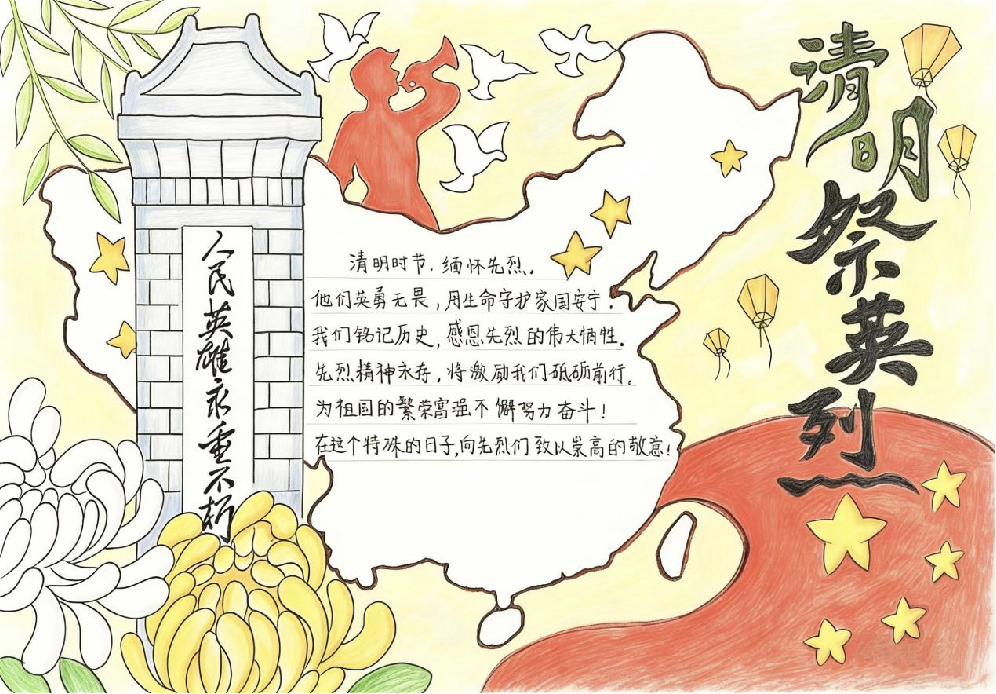 清明祭英烈
人民英雄永垂不朽
清明时节,缅怀先烈。
他们英勇无畏,用生命守护家国安宁!
我们铭记历史,感恩先烈的伟大牺牲。
先烈精神永存,将激励我们砥砺前行。
为祖国的繁荣富强不懈努力奋斗!
在这个特殊的日子,向先烈们致以崇高的敬意!